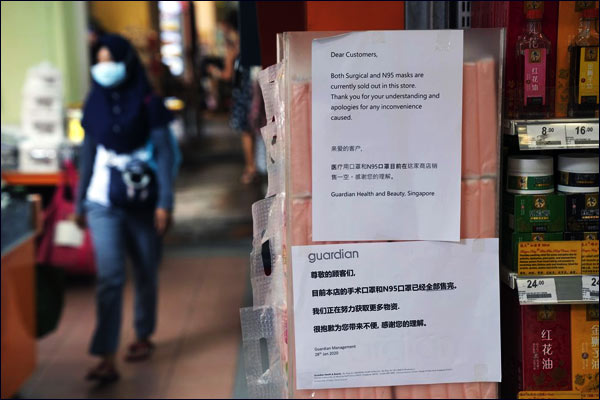 Dear Customers,
Both Surgical and N95 masks are
currently sold out in this store.
Thank you for your understanding and
apologies for any inconvenience
caused.
亲爱的客户,
医疗用口罩和N95口罩目前在这家商店销
售一空。感谢您的理解。
Guardian Health and Beauty, Singapore
guardian
尊敬的顾客们,
目前本店的手术口罩和N95口罩已经全部售完。
我们正在努力获取更多物资.
很抱歉为您带来不便, 感谢您的理解。
Guardian Management
28th Jan 2020
红花油
8.00
16.00
24.00
24.
红花油